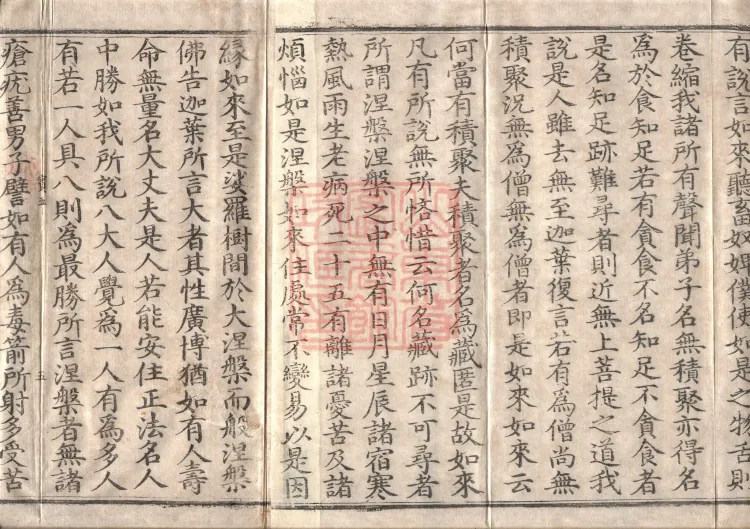 有說言如來聽畜奴婢僕使如是之物舌則
卷縮我諸所有聲聞弟子名無積聚亦得名
為於食知足若有貪食不名知足不貪食者
是名知足跡難尋者則近無上菩提之道我
說是人雖去無至迦葉復言若有為僧尚無
積聚況無為僧無為僧者即是如來如來云
何當有積聚夫積聚者名為藏匿是故如來
凡有所說無所悋惜云何名藏跡不可尋者
所謂涅槃涅槃之中無有日月星辰諸宿寒
熱風雨生老病死二十五有離諸憂苦及諸
煩惱如是涅槃如來住處常不變易以是因
緣如來至是娑羅樹間於大涅槃而般涅槃
佛告迦葉所言大者其性廣博猶如有人壽
命無量名大丈夫是人若能安住正法名人
中勝如我所說八大人覺為一人有為多人
有若一人具八則為最勝所言涅槃者無諸
瘡疣善男子譬如有人為毒箭所射多受苦
五